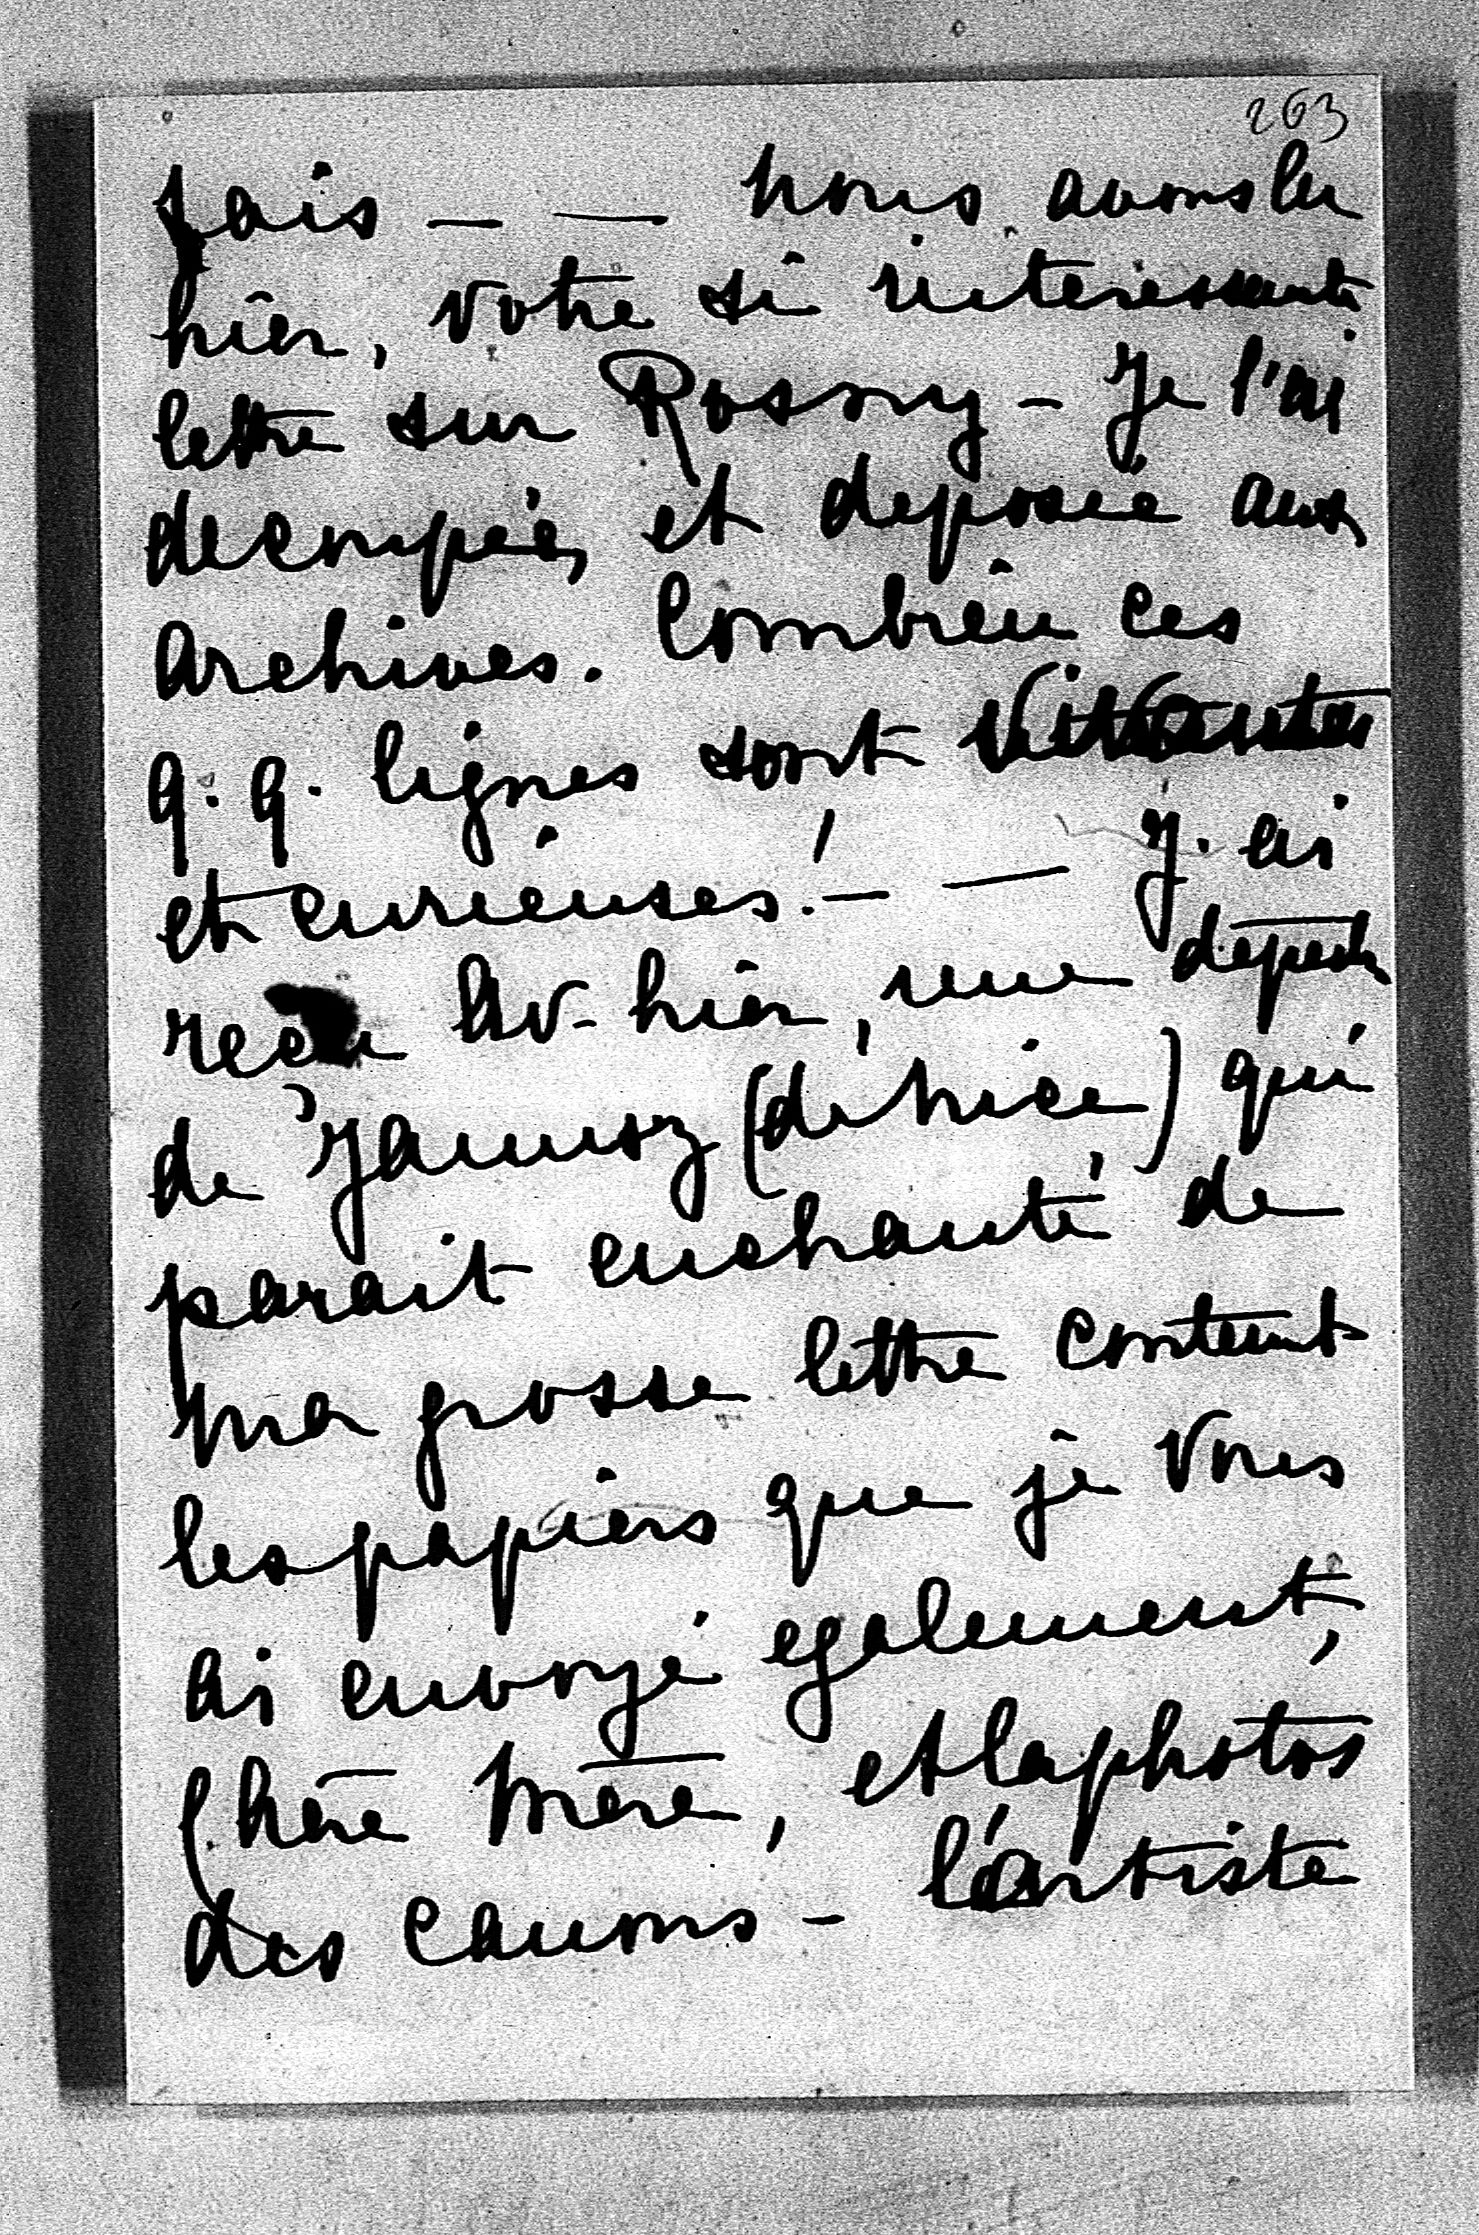 263
fais — — nous avons lu
hier, votre si interessante
lettre sur Rosny — Je l'ai
decoupée, et deposée aux
archives. Combien ces
q. q. lignes sont
et curieuses! — — J. ai
reçu av-hier, une depech
de Jamoz (détrice) qui
parait enchanté de
ma grosse lettre content
les papiers que je vous
ai envoyé egalement,
Chère Mère, et la photos
des canons — l'artiste